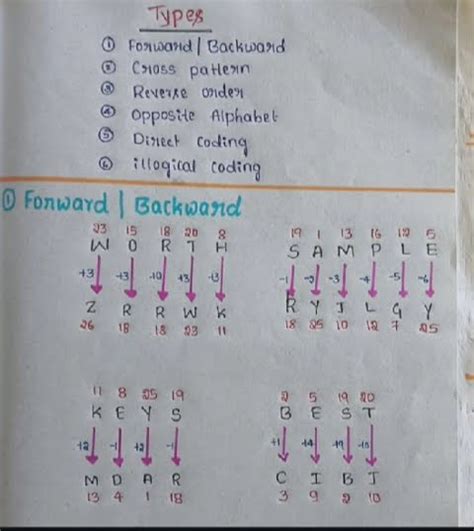 Types
① Forward | Backward
② Cross pattern
③ Reverse order
④ Opposite Alphabet
⑤ Direct Coding
⑥ illogical coding
① Forward | Backward
23 15 18 20 8
W O R T H
+3 +3 +0 +3 +3
Z R R W K
26 18 18 23 11
19 1 13 16 12 5
S A M P L E
-1 -2 -3 -4 -5 -6
R Y J L G Y
18 25 10 12 7 25
11 8 25 19
K E Y S
+2 -1 +2 -1
M D A R
13 4 1 18
2 5 19 20
B E S T
+1 +4 +9
C I B J
3 9 2 10